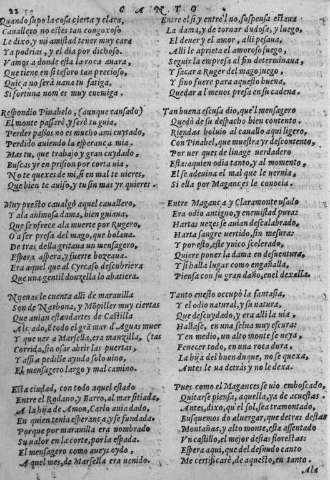 22
CANTO
Quando supo la cosa cierta y clara,
Cauallero no estes tan congoxado
Le dixo, y mi amistad tener muy cara
Y a podrias, y el dia por dichoso.
Vamos a donde esta la roca auara,
Que tiene en si tesoro tan precioso,
Que ca no será vana tu fatiga,
Si fortuna nom es muy enemiga.
Respondio Pinabelo, (aunque cansado)
El monte passaré, y seré tu guia,
Perder passos no es mucho ami cuytado,
Perdido auiendo la esperança mia.
Mas tu, que trabajo y gran cuydado,
Buscas yr en prision por corta via,
No te quexes de mi, si en mal te vieres,
Que bien te auiso, y tu sin mas yr quieres.
Muy presto caualgó aquel cauallero,
Y a la animosa dama, bien guiana,
Que se ofrece a la muerte por Rugero,
O a ser presa del mago, que bolana.
De tras della gritaua un mensagero,
Espera, espera, y fuerte bozeaua.
Era aquel que al Cyrcaso descubriera
Que una gentil donzella lo abatiera.
Nueuas le cuenta alli de marauilla
Son de Narbona, y Mõpiller muy ciertas
Que auian estandartes de Castilla
Alçado, è todo el grã mar d'Aguas muer
Y que ver a Marsella, era manzilla, (tas
Corrida, sin osar abrir las puertas,
Y assi a pedille ayudo solo vino,
El mensagero largo y mal camino.
Esta ciudad, con todo aquel estado
Entre el Rodano, y Barro, al mar sitiada,
A la hija de Amon, Carlo auia dado,
En quien tenia esperança, y fe fundada.
Porque por marauilla era nombrado
Su valor en la corte, por la espada.
El mensagero como aueys oydo,
A aquel mes, de Marsella era uenido.
Entre el si y entre'l no, suspensa estaua
La dama, y de tornar dudosa, y luego,
El deuer y el amor, alli pesaua,
Alli le aprieta el amoroso fuego,
Seguir la empresa al fin determinaua,
Y sacar a Ruger del mago juego,
Y sino fuere para aquello buena,
Quedar a l'menos presa en su cadena.
Tan buena escusa dio, que'l mensagero
Quedó de su despacho bien contento.
Riendas boluio al cauallo aqui ligero,
Con Pinabel, que muestra yr descontento,
Por uer ques de linage verdadero
Esta: aquien odia tanto, y al momento,
El se adeuina el mal que le vernia
Si ella por Magancés le conocia.
Entre Magança y Claramonte usado
Era odio antiguo, y enemistad pura:
Hartas vezes se auian descalabrado,
Harta sangre vertido, sin mesura:
Y por esto, este ynico scelerado,
Quiere poner la dama en desuentura,
Y si halla lugar como engañalla,
Piensa con su gran daño, en el dexalla.
Tanto ensesto occupò la fantasia,
Y el odio natural, y su natura,
Que descuydado, y era alli la uia,
Hallase, en una selua muy escura:
Y en medio, un alto monte se uya,
Fenecer todo, en una roca dura.
La hija del buen duque, no se quexa,
Antes le ua detras y no le dexa.
Pues como el Magances se uio emboscado,
Quitarse piensa, aquella, ya de acuestas.
Antes, dixo, qu'el sol, sea tramontado,
Busquemos do aluergar, que detras destas
Montañas, y alto monte, esta assentado
Vn castillo, el mejor destas florestas:
Espera aqui, que del desundo canto
Me certificaré, de aquesto, en tanto.
Ala